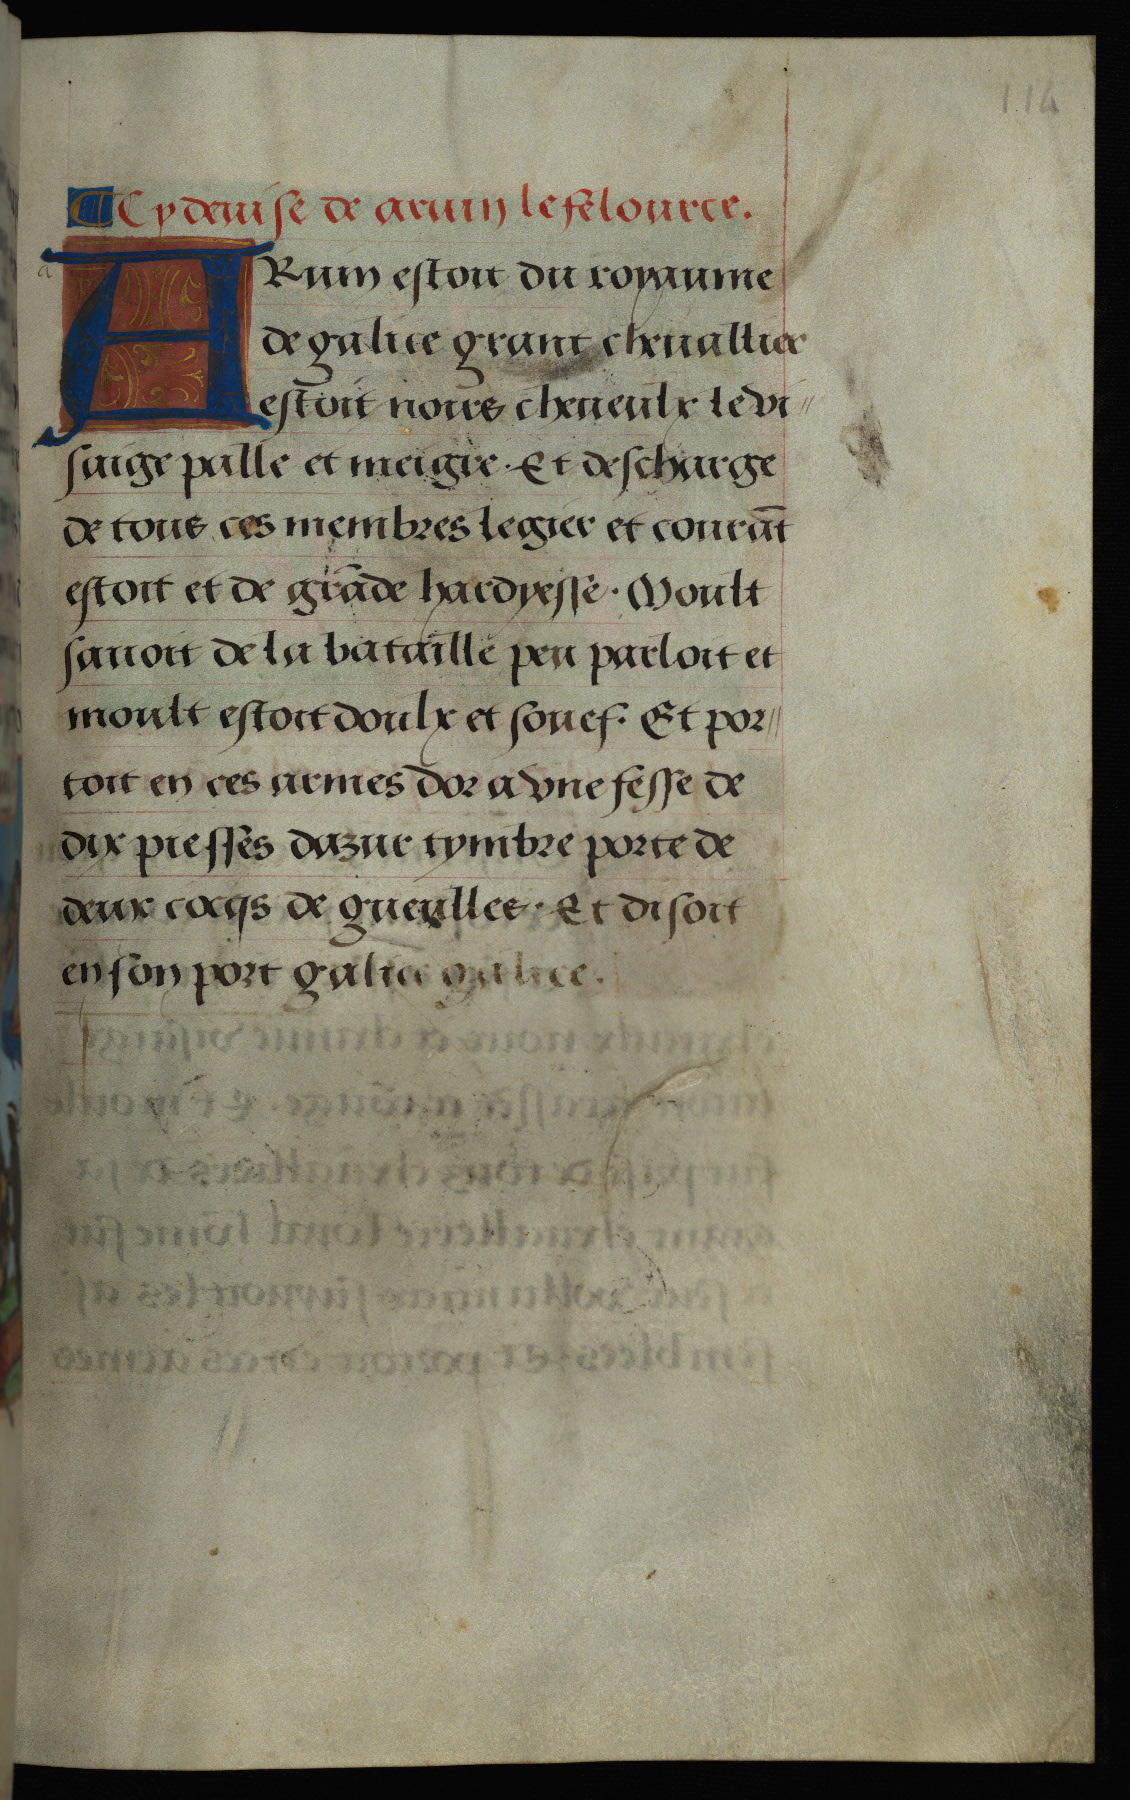 114
Cy deuise de aruin le felource.
ARuin estoit du royaume
de galice grant cheuallier
estoit noirs cheueulx le vi
saige palle et meigre. Et descharge
de tous ces membres legier et courāt
estoit et de grāde hardyesse. Moult
sauoit de la bataille peu parloit et
moult estoit doulx et souef. Et por
toit en ces armes dor a vne fesse de
dix piesses dazur tymbre porte de
deux cocqs de gueulles. Et disoit
en son port galice galice.